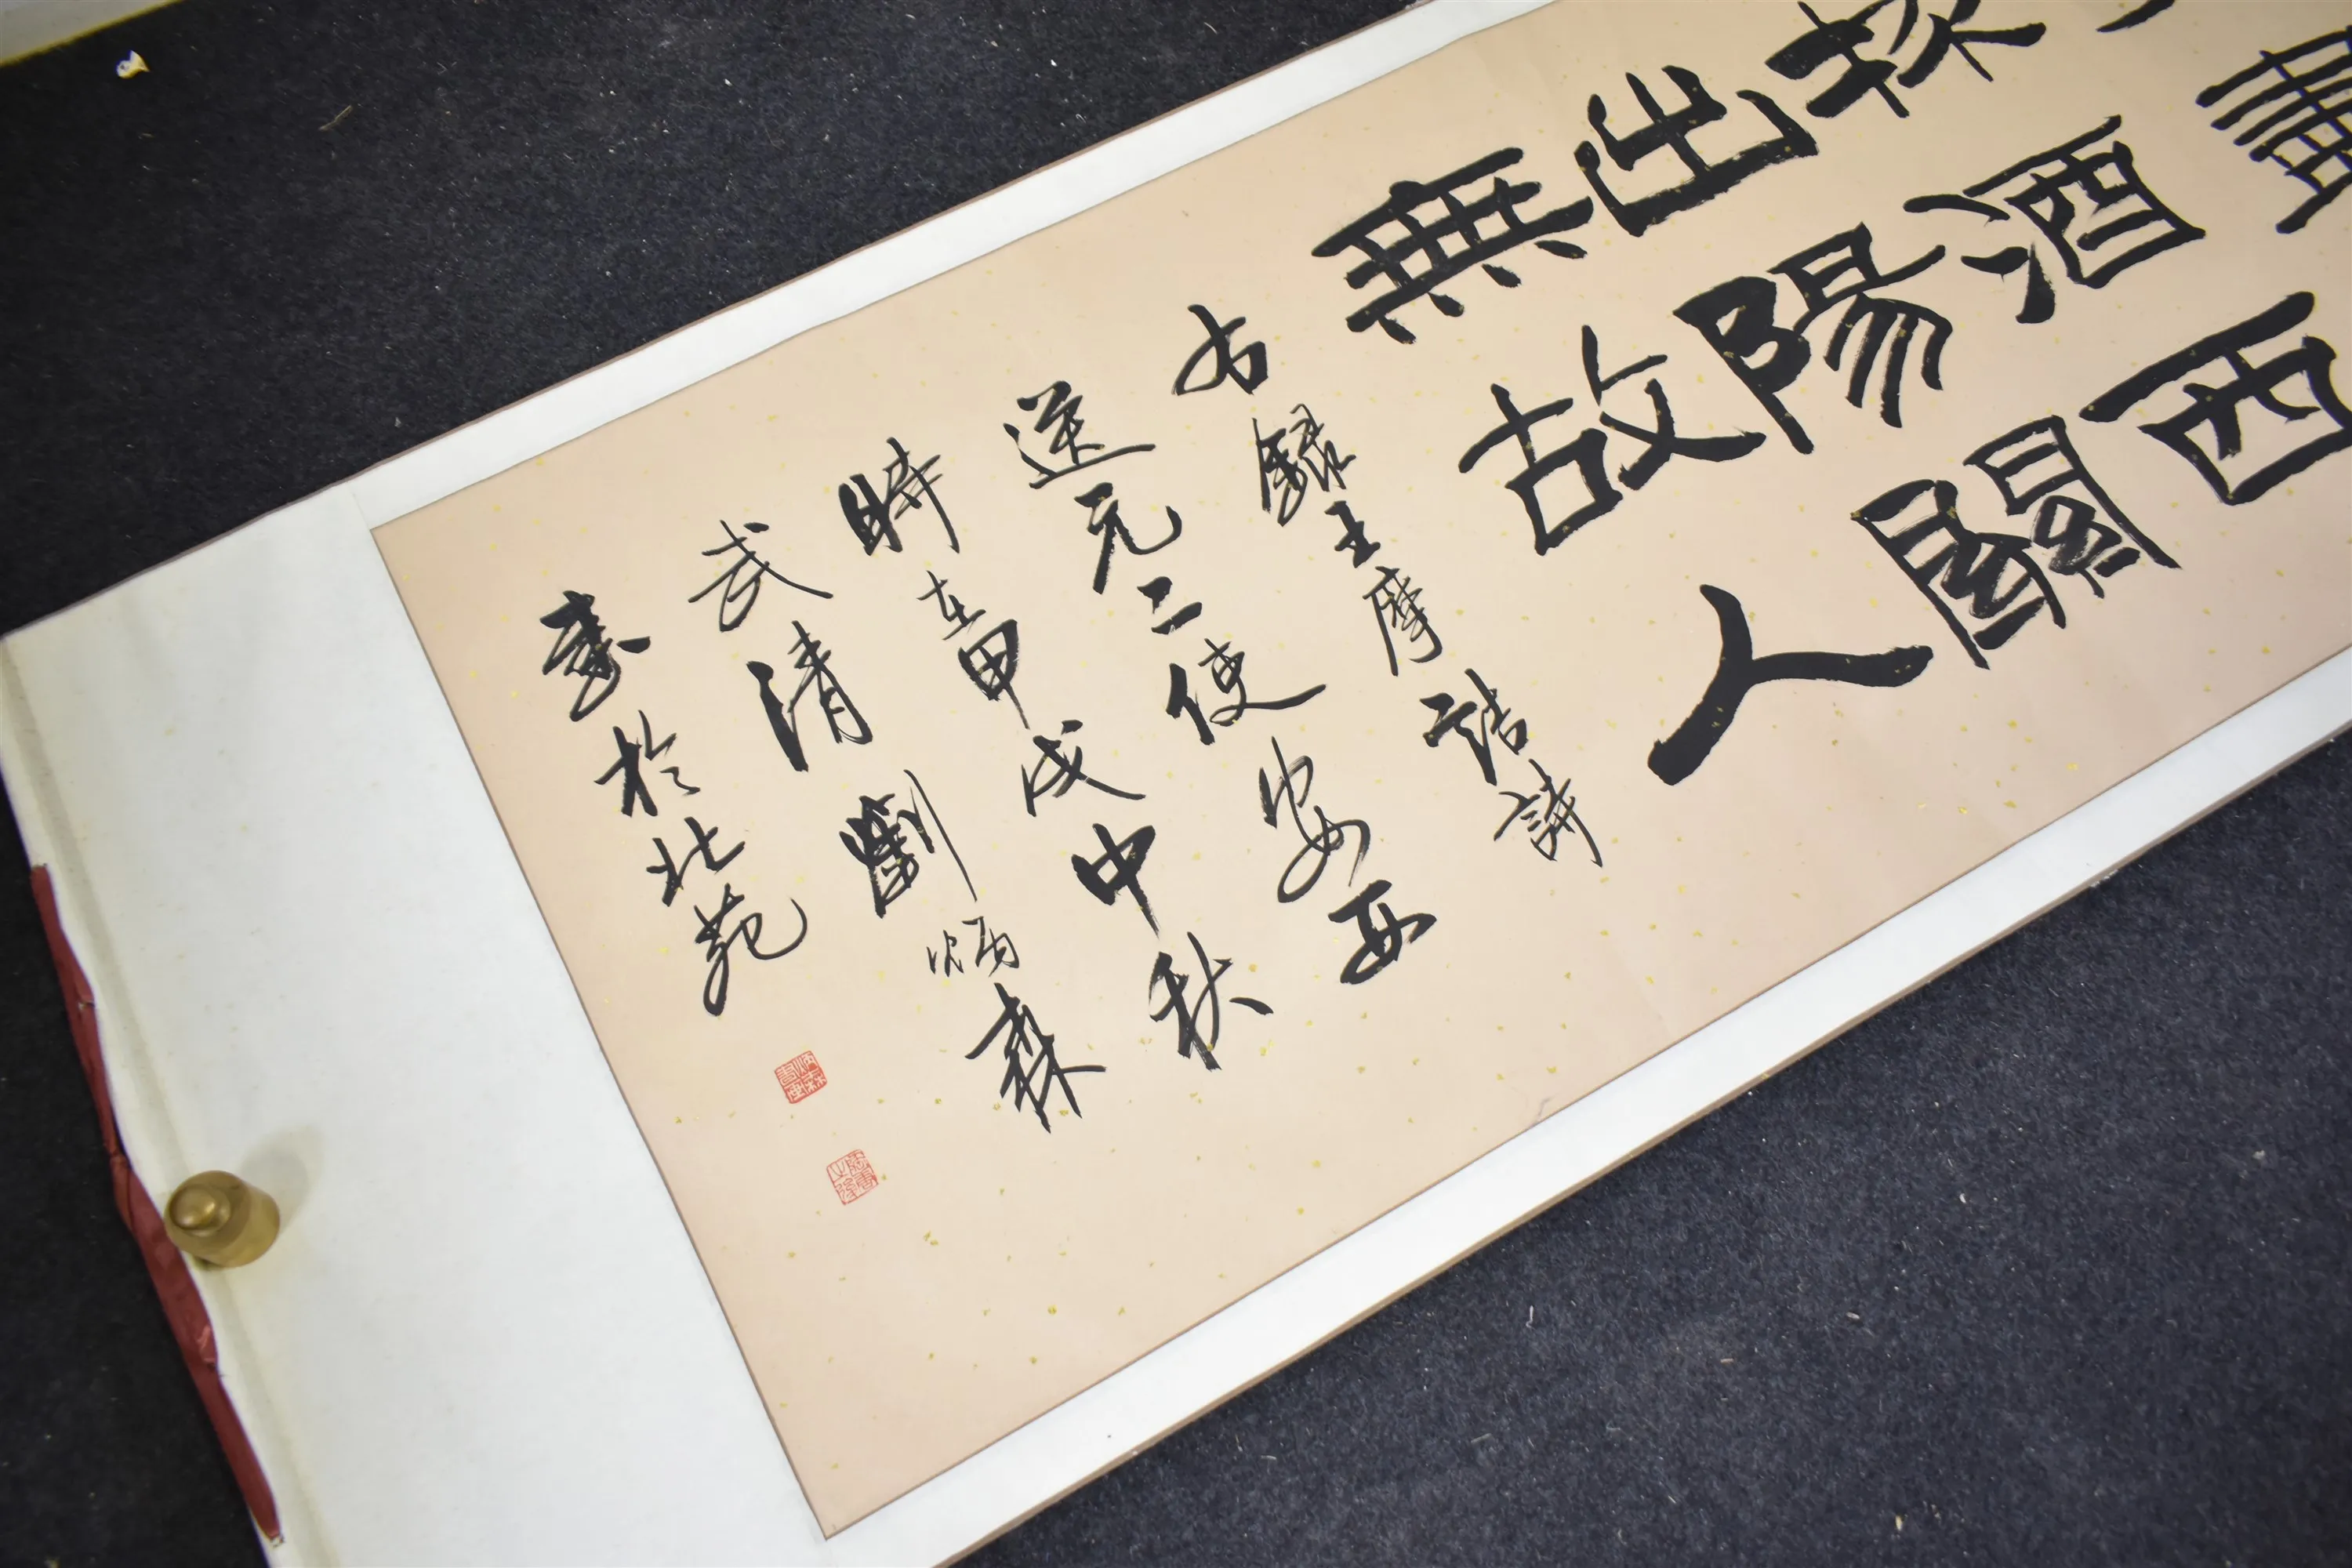 杯酒西
出陽關
無故人
右錄王摩詰詩
送元二使安西
時在甲戌中秋
武清劉炳森
書於北苑